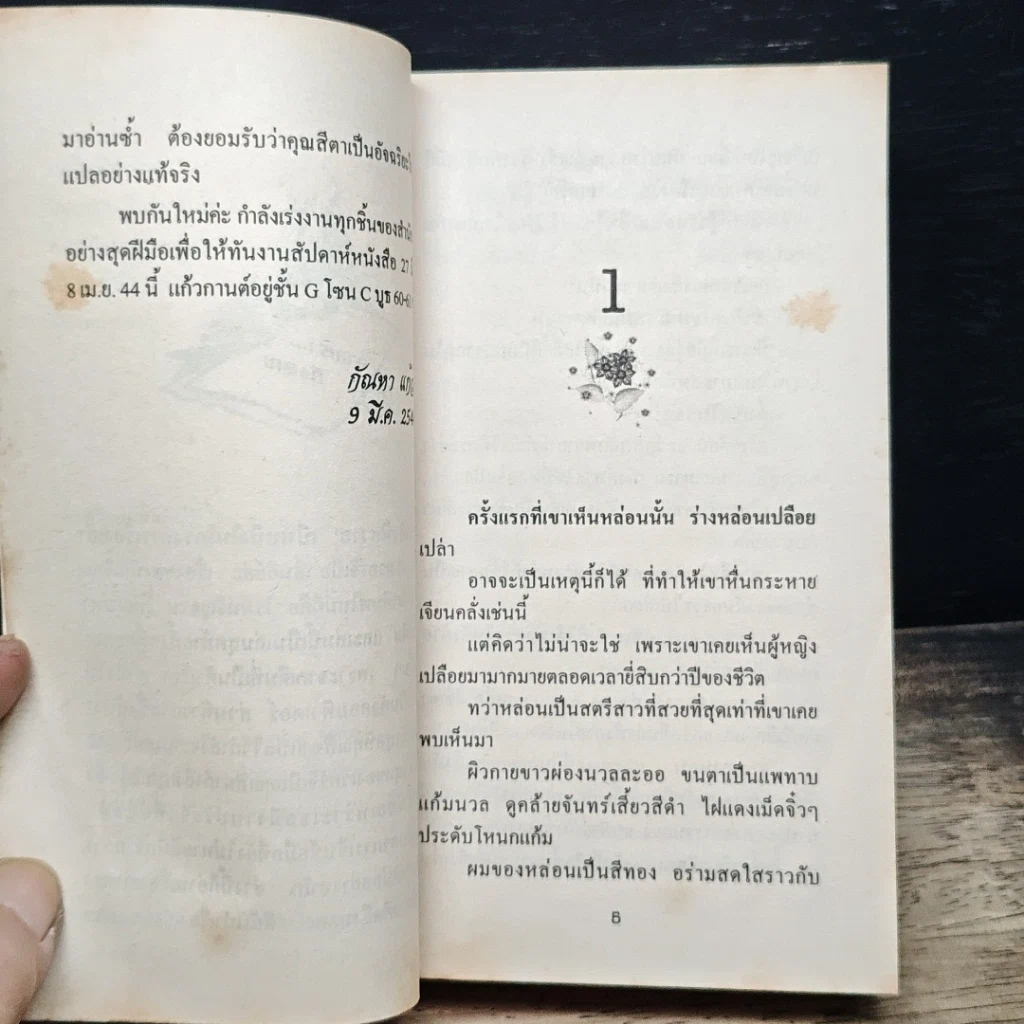 มาอ่านซ้ำ ต้องยอมรับว่าคุณสีตาเป็นอัจฉริยะ
แปลอย่างแท้จริง
พบกันใหม่ค่ะ กำลังเร่งงานทุกชิ้นของ
อย่างสุดฝีมือเพื่อให้ทันงานสัปดาห์หนังสือ 27
8 เม.ย. 44 นี้ แก้วกานต์อยู่ชั้น G โซน C บูธ 60-
กัณหา
9 มี.ค. 254
1
ครั้งแรกที่เขาเห็นหล่อนนั้น ร่างหล่อนเปลือย
เปล่า
อาจจะเป็นเหตุนี้ก็ได้ ที่ทำให้เขาหื่นกระหาย
เจียนคลั่งเช่นนี้
แต่คิดว่าไม่น่าจะใช่ เพราะเขาเคยเห็นผู้หญิง
เปลือยมามากมายตลอดเวลายี่สิบกว่าปีของชีวิต
ทว่าหล่อนเป็นสตรีสาวที่สวยที่สุดเท่าที่เขาเคย
พบเห็นมา
ผิวกายขาวผ่องนวลละออ ขนตาเป็นแพทาบ
แก้มนวล ดูคล้ายจันทร์เสี้ยวสีดำ ไฝแดงเม็ดจิ๋วๆ
ประดับโหนกแก้ม
ผมของหล่อนเป็นสีทอง อร่ามสดใสราวกับ
5